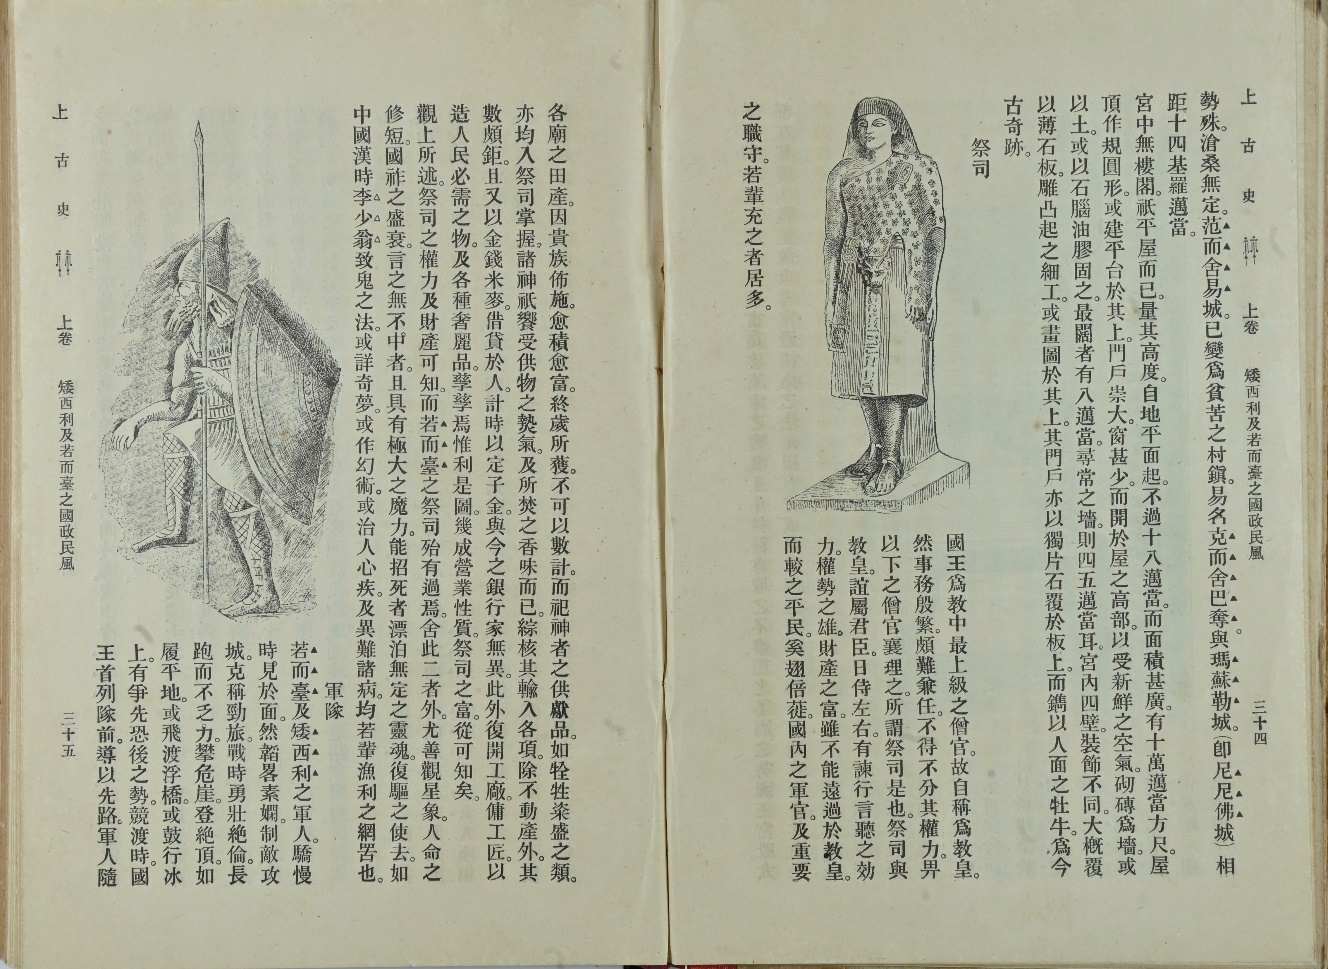 上古史 上卷 矮西利及若而臺之國政民風 三十四
勢殊。滄桑無定。范而舍易城。已變爲貧苦之村鎭。易名克而舍巴奪。與瑪蘇勒城。(卽尼尼佛城)相
距十四基羅邁當。
宮中無樓閣。祇平屋而已。量其高度。自地平面起。不過十八邁當。而面積甚廣。有十萬邁當方尺。屋
頂作規圓形。或建平台於其上。門戶崇大。窗甚少。而開於屋之高部。以受新鮮之空氣。砌磚爲墻。或
以土。或以石腦油膠固之。最闊者有八邁當。尋常之墻。則四五邁當耳。宮內四壁。裝飾不同。大槪覆
以薄石板。雕凸起之細工。或畫圖於其上。其門戶亦以獨片石覆於板上。而鐫以人面之牡牛。爲今
古奇跡。
祭司
國王爲教中最上級之僧官。故自稱爲教皇。
然事務殷繁。頗難兼任。不得不分其權力。畀
以下之僧官襄理之。所謂祭司是也。祭司與
教皇。誼屬君臣。日侍左右。有諫行言聽之効
力。權勢之雄。財產之富。雖不能遠過於教皇。
而較之平民。奚翅倍蓰。國內之軍官。及重要
之職守。若輩充之者居多。
各廟之田產。因貴族佈施。愈積愈富。終歲所獲。不可以數計。而祀神者之供獻品。如牷牲粢盛之類。
亦均入祭司掌握。諸神祇饗受供物之㷀氣。及所焚之香味而已。綜核其輸入各項。除不動產外。其
數頗鉅。且又以金錢米麥。借貸於人。計時以定子金。與今之銀行家無異。此外復開工廠。傭工匠。以
造人民必需之物。及各種奢麗品。孳孳焉惟利是圖。幾成營業性質。祭司之富。從可知矣。
觀上所述。祭司之權力及財產可知。而若而臺之祭司殆有過焉。舍此二者外。尤善觀星象。人命之
修短。國祚之盛衰。言之無不中者。且具有極大之魔力。能招死者漂泊無定之靈魂。復驅之使去。如
中國漢時李少翁致鬼之法。或詳奇夢。或作幻術。或治人心疾。及異難諸病。均若輩漁利之網罟也。
軍隊
若而臺及矮西利之軍人。驕慢
時見於面。然韜畧素嫻。制敵攻
城。克稱勁旅。戰時勇壯絕倫。長
跑而不乏力。攀危崖。登絶頂。如
履平地。或飛渡浮橋。或鼓行冰
上。有爭先恐後之勢。競渡時。國
王首列隊前。導以先路。軍人隨
上古史 上卷 矮西利及若而臺之國政民風 三十五